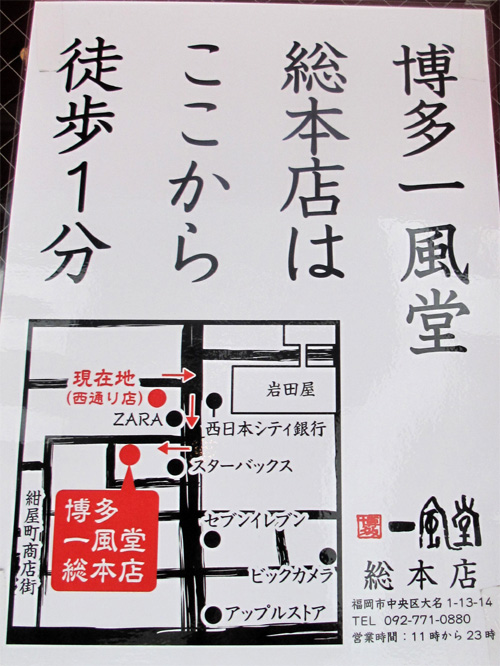 博多一風堂
総本店は
ここから
徒歩1分
現在地
(西通り店)
ZARA
岩田屋
西日本シティ銀行
スターバックス
博多
一風堂
総本店
紺屋町商店街
セブンイレブン
ビックカメラ
アップルストア
博多
一風堂
総本店
福岡市中央区大名1-13-14
TEL 092-771-0880
営業時間：11時から23時